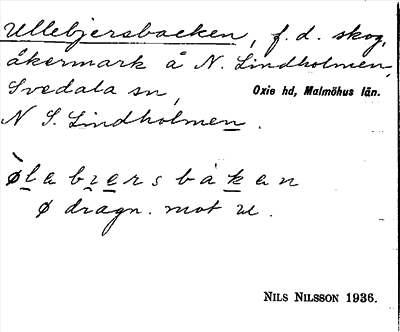 Ullebjersbacken, f.d. skog,
åkermark å N. Lindholmen,
Svedala sn, Oxie hd, Malmöhus län.
N S. Lindholmen.
ø̀labiersbakan
ø dragn. mot u.
NILS NILSSON 1936.